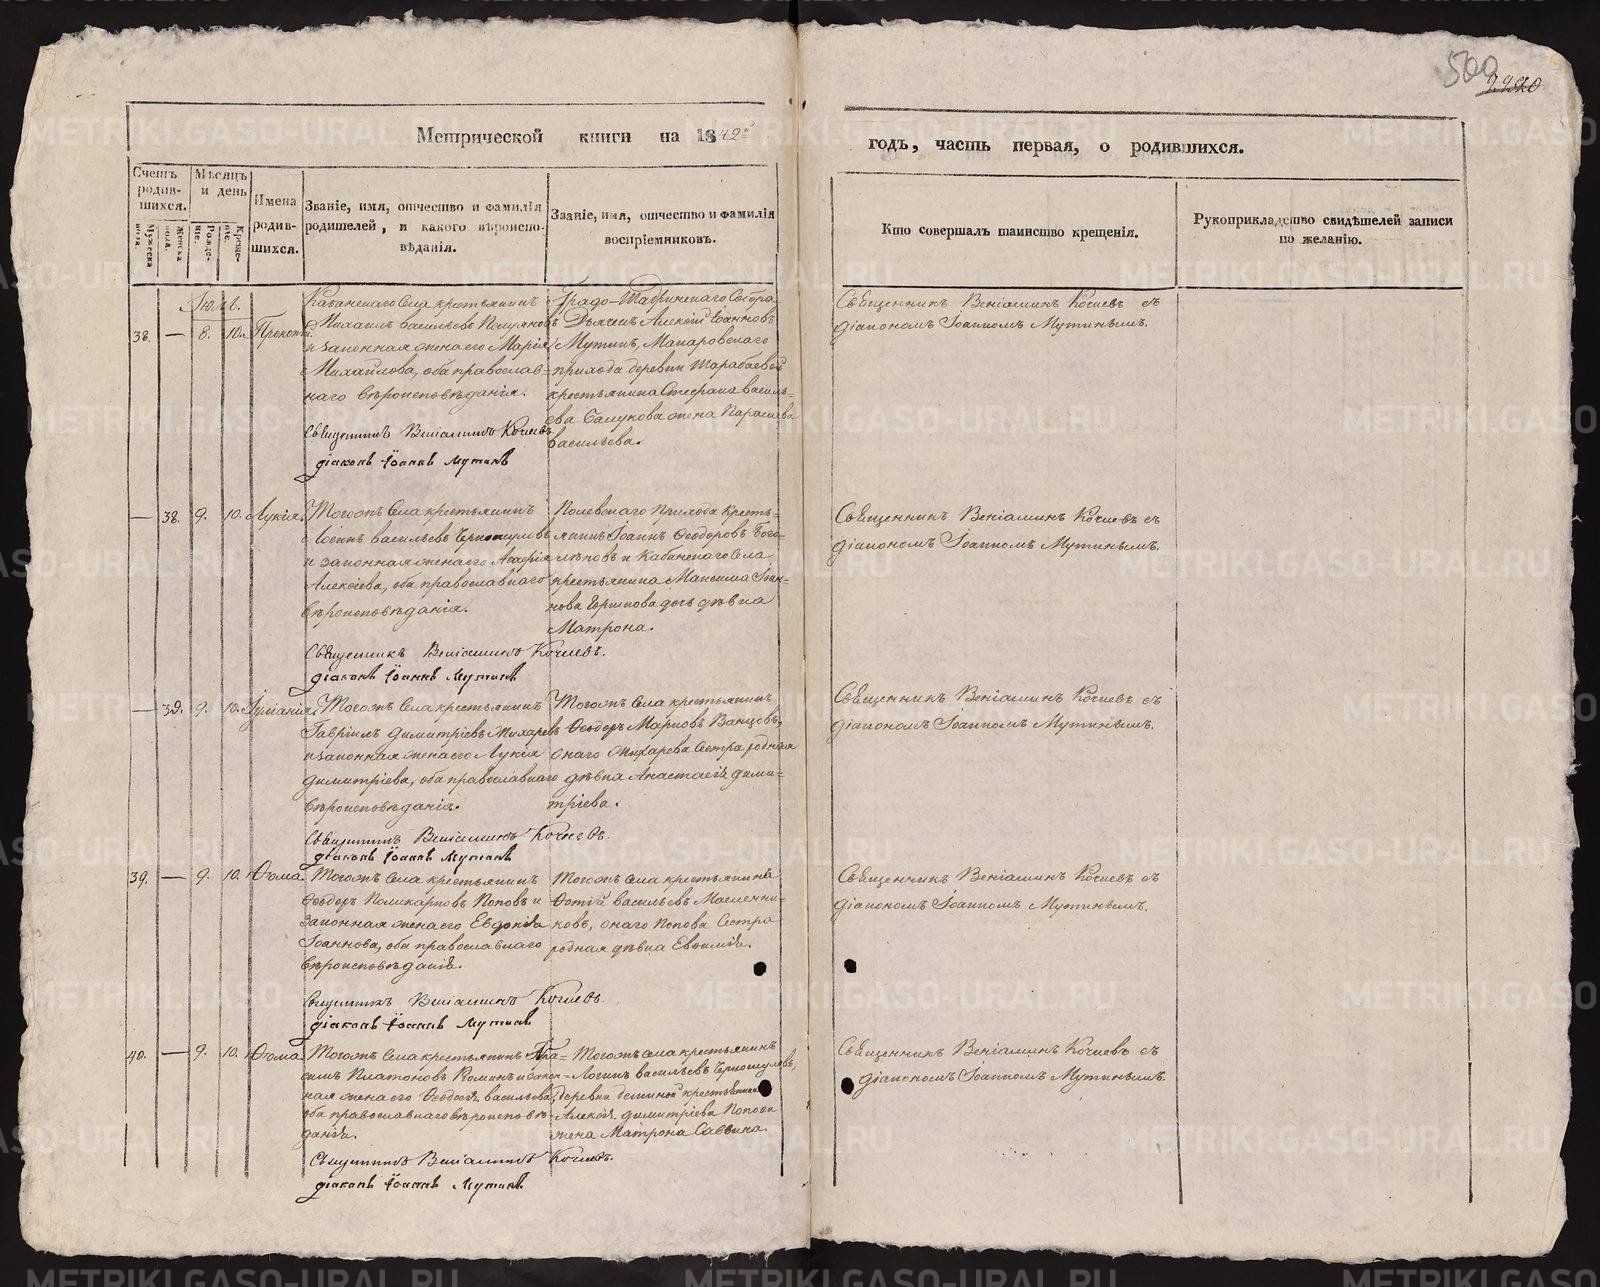 500
Метрической книги на 1842й
годъ, часть первая, о родившихся.
Счетъ родив-шихся.
Мужеска пола.
Женска пола.
Мѣсяцъ и день
Рожде-ніе.
Креще-ніе.
Имена родив-шихся.
Званіе, имя, отчество и фамилія родителей, и какого вѣроиспо-вѣданія.
Званіе, имя, отчество и фамилія воспріемниковъ.
Кто совершалъ таинство крещенія.
Рукоприкладство свидѣтелей записи по желанію.
Іюль.
38. — 8. 10. Прокопій
Кабанскаго Села крестьянинъ
Михаилъ Васильевъ
и законная жена его Марія
Михайлова, оба православ-
наго вѣроисповѣданія.
Священникъ Веніаминъ Кочневъ
діаконъ Іоаннъ Мутинъ
Градо-Шадринскаго Собора
Дьячекъ Алексій Іоанновъ
Мутинъ, Макаровскаго
прихода деревни Шарабаевой
крестьянина Стефана Василь-
ева жена Параскева
Васильева.
Священникъ Веніаминъ Кочневъ съ
діакономъ Іоанномъ Мутинымъ.
— 38. 9. 10. Лукія.
Тогожъ Села крестьянинъ
Логинъ Васильевъ
и законная жена его Агафія
Алексіева, оба православнаго
вѣроисповѣданія.
Священникъ Веніаминъ Кочневъ.
діаконъ Іоаннъ Мутинъ
Полевскаго Прихода кресть-
янинъ Іоаннъ Ѳеодоровъ Бого-
лѣповъ и Кабанскаго Села
крестьянина Максима Іоан-
нова дочь дѣвка
Матрона.
Священникъ Веніаминъ Кочневъ съ
діакономъ Іоанномъ Мутинымъ.
— 39. 9. 10. Іуліанія.
Тогожъ Села крестьянинъ
Гавріилъ Димитріевъ Жихаревъ
и законная жена его Лукія
Димитріева, оба православнаго
вѣроисповѣданія.
Священникъ Веніаминъ Кочневъ.
діаконъ Іоаннъ Мутинъ
Тогожъ Села крестьянинъ
Ѳеодоръ Марковъ
онаго Жихарева Сестра родная
дѣвка Анастасія Дими-
тріева.
Священникъ Веніаминъ Кочневъ съ
діакономъ Іоанномъ Мутинымъ.
39. — 9. 10. Ѳома.
Тогожъ Села крестьянинъ
Ѳеодоръ Поликарповъ Поповъ и
законная жена его Евдокія
Іоаннова, оба православнаго
вѣроисповѣданія.
Священникъ Веніаминъ Кочневъ.
діаконъ Іоаннъ Мутинъ
Тогожъ Села крестьянинъ
Фотій Васильевъ Масленни-
ковъ, онаго Попова Сестра
родная дѣвка Евѳимія.
Священникъ Веніаминъ Кочневъ съ
діакономъ Іоанномъ Мутинымъ.
40. — 9. 10. Ѳома.
Тогожъ Села крестьянинъ Гра-
Платоновъ и закон-
ная жена его Ѳеодосія Васильева,
оба православнаго вѣроисповѣ-
данія.
Священникъ Веніаминъ Кочневъ.
діаконъ Іоаннъ Мутинъ
Тогожъ Села крестьянинъ
Логинъ Васильевъ
деревни крестьянина
Алексія Димитріева Попова
жена Матрона Саввина.
Священникъ Веніаминъ Кочневъ съ
діакономъ Іоанномъ Мутинымъ.
METRIKI.GASO-URAL.RU